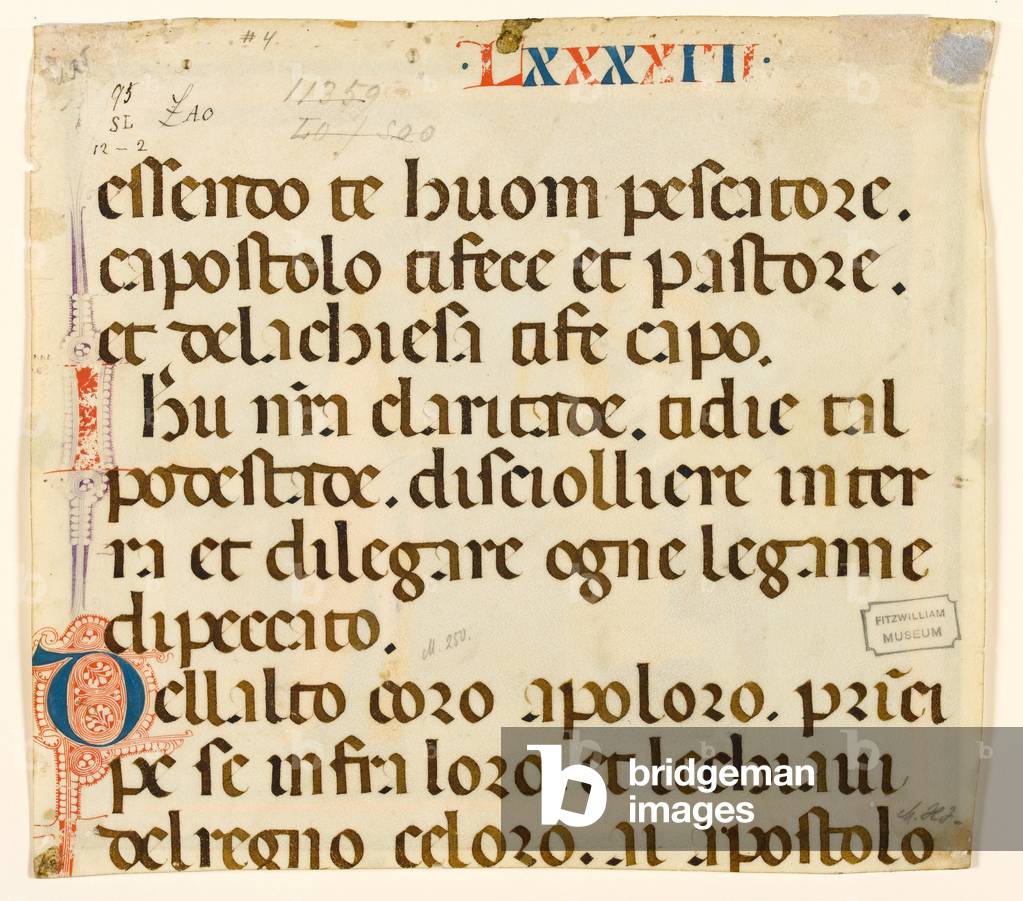 # 4
· LXXXXVII ·
95
SL
ZAO
12 – 2
11259
essendo te huom pescatore.
capostolo tifece et pastore.
et delachiesa tife capo.
Ihu nr̄a claritade. tidie tal
podestade. disciolliere inter
ra et dilegare ogne legame
dipeccato.
M. 250.
FITZWILLIAM
MUSEUM
Dellalto coro apoloro. prīci
pe se infra loro. et lechiaui
delregno celoro. ai apostolo
bridgeman
images